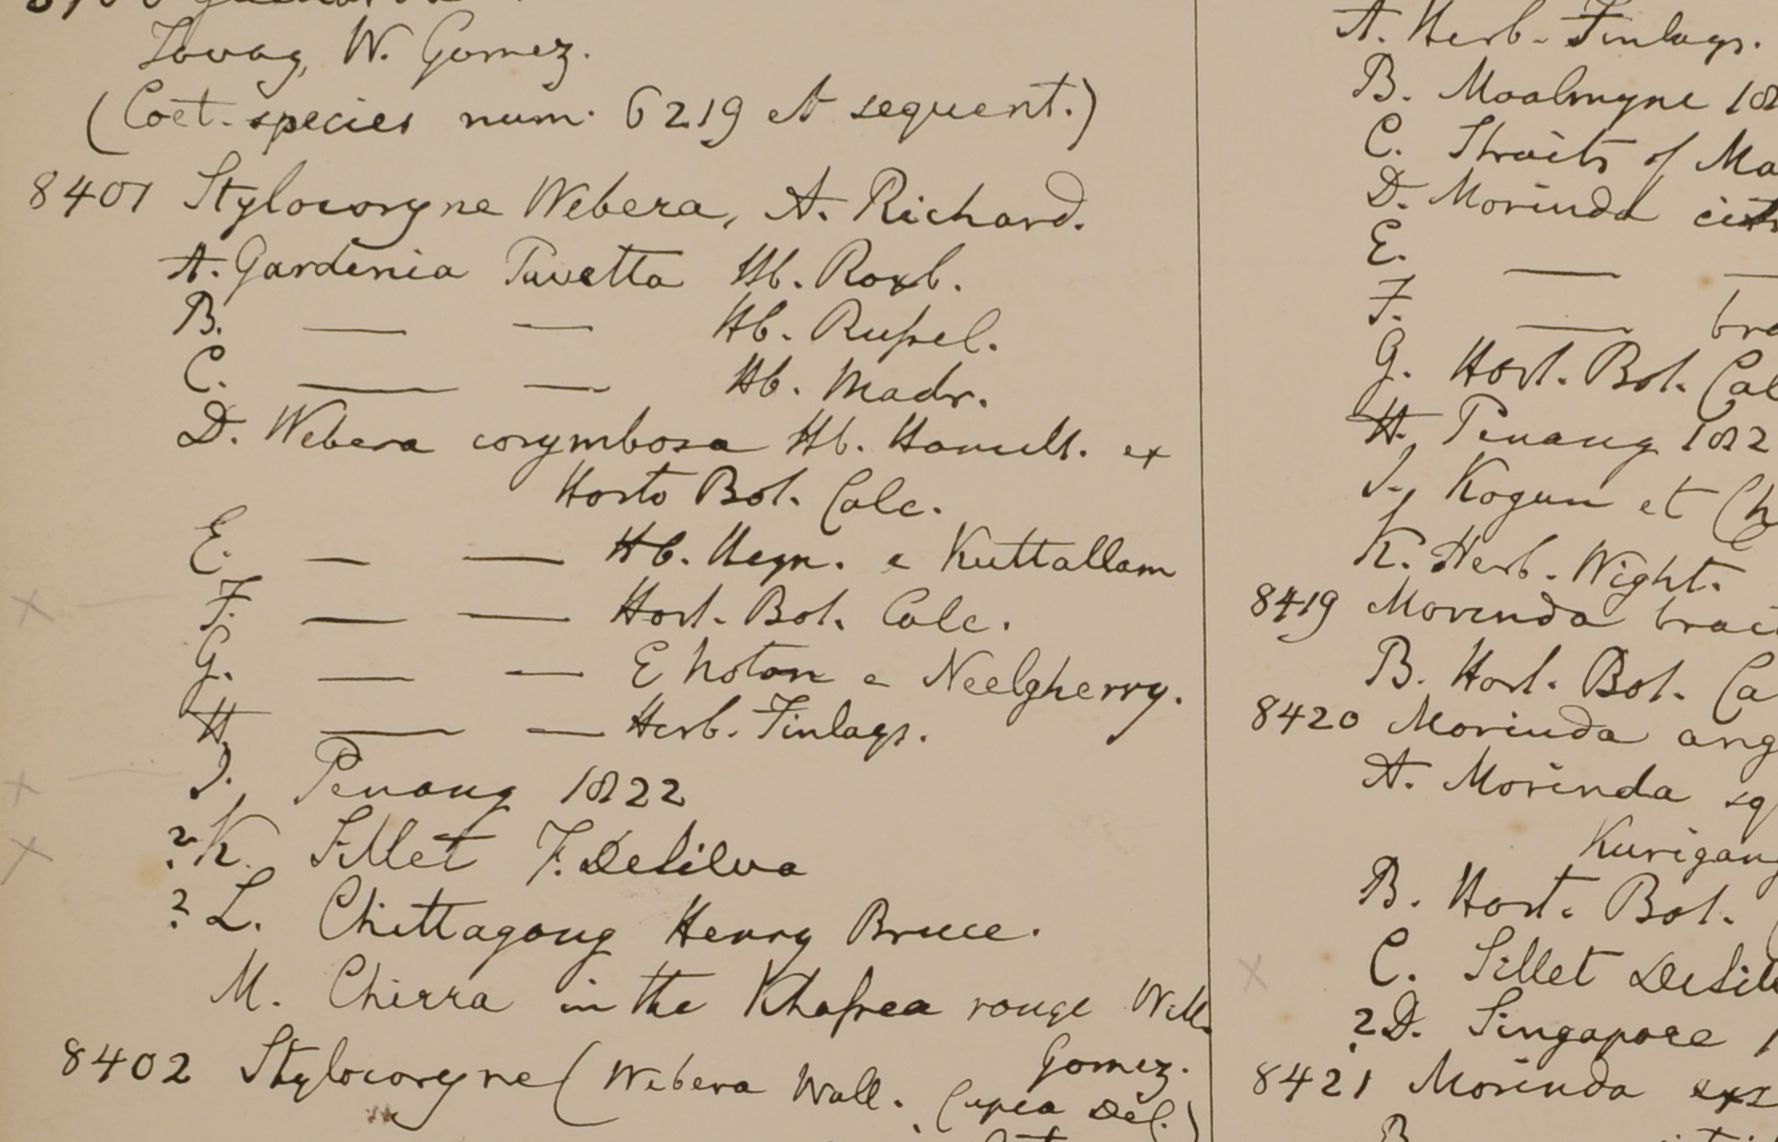 Tavoy, W. Gomez.
(Coet. species num. 6219 et sequent.)
8401 Stylocoryne Webera, A. Richard.
A. Gardenia Pavetta Hb. Roxb.
B. — — Hb. Russel.
C. — — Hb. Madr.
D. Webera corymbosa Hb. Hamilt. ex
Horto Bot. Calc.
E. — — Hb. Heyn. e Kuttallam
F. — — Hort. Bot. Calc.
G. — — E Noton e Neelgherry.
H — — Herb. Finlays.
I. Penang 1822
? K. Sillet F. DeSilva
? L. Chittagong Henry Bruce.
M. Chirra in the Khassea range Will.
Gomez.
8402 Stylocoryne (Webera Wall. Cupea Del.)
A. Herb. Finlays.
B. Moalmyne 182
C. Straits of Ma
D. Morinda citr
E. — —
F. — bra
G. Hort. Bot. Cal
H. Penang 1822
I. Kogun et Ch
K. Herb. Wight.
8419 Morinda bract
B. Hort. Bot. Ca
8420 Morinda ang
A. Morinda sq
Kurigang
B. Hort. Bot.
C. Sillet DeSil
? D. Singapore 1
8421 Morinda exs
B.